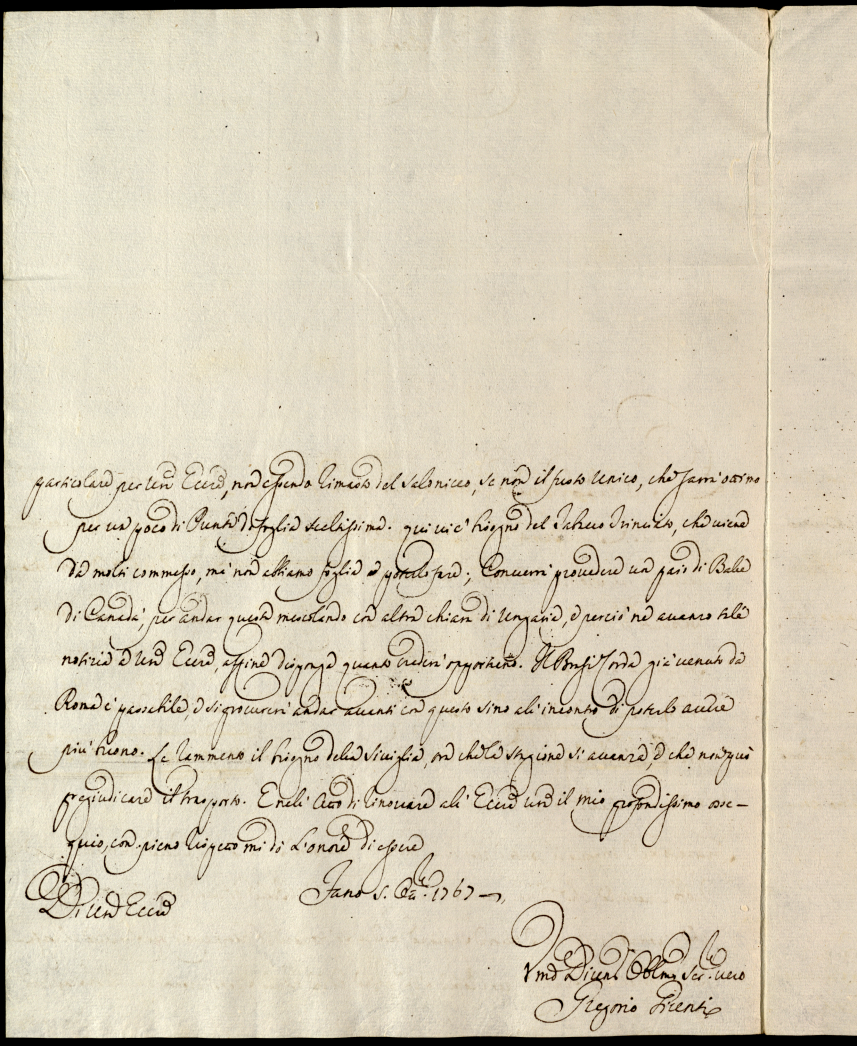 particolare per Vrã Eccã, non essendo rimasto del Salonicco, se non il fusto unico, che sarà ottimo
per un poco di Punta di foglia sceltissima. qui vi è bisogno del Tabacco Trinciato, che viene
da molti commesso, mà non abbiamo foglia da poterlo fare; Converrà provedere un paio di Balle
di Canada, per andar questa mescolando con altra chiara di Ungaria, e perciò ne avanzo tale
notizia a Vrã Eccã, affine disponga quanto crederà opportuno. Il Corda già venuto da
Roma è passabile, e si procurerà andar avanti con questo sino all' incontro di poterlo avere
più buono. Le rammento il bisogno della Siviglia, ora che la stagione si avanza e che non può
pregiudicare il trasporto. E nell' Atto di rinovare all' Eccã Vrã il mio profondissimo osse-
quio, con pieno rispetto mi dò l'onore di essere
Di Vrã Eccã
Fano 5. 1767
Vmõ Oblmõ Ser. vero
Gregorio